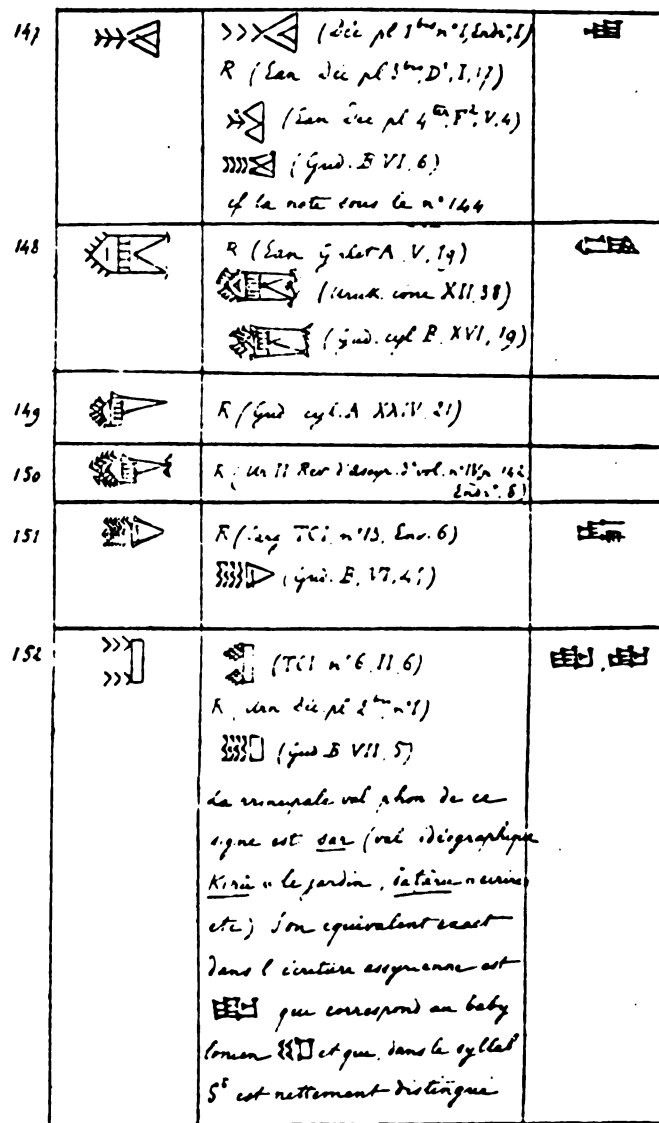 147 (Déc pl 3 bis n° I, Endr, I)
R (Ean Déc pl 3 bis, D¹, I, 17)
(Ean Déc pl 4 ter, F², V, 4)
(Gud. B VI, 6)
cf la note sous le n° 144
148 R (Ean galet A. V, 19)
(Uruk. cone XII, 38)
(Gud. cyl B. XVI, 19)
149 R (Gud cyl. A XXIV, 21)
150 R (Ur II Rev d'assyr. vol. n° IV, p 142
151 R (Sarg TCI, n° 13, Env. 6)
(Gud. B, VI, 4)
152 (TCI n° 6, II, 6)
R Urn Déc pl 2 bis, n° I)
(Gud B VII, 5)
La principale val phon de ce
signe est sar (val idéographique
Kirû "le jardin,
etc) son equivalent exact
dans l'écriture assyrienne est
que correspond au baby
lonien et que, dans le syllab
Sᵇ est nettement distingué